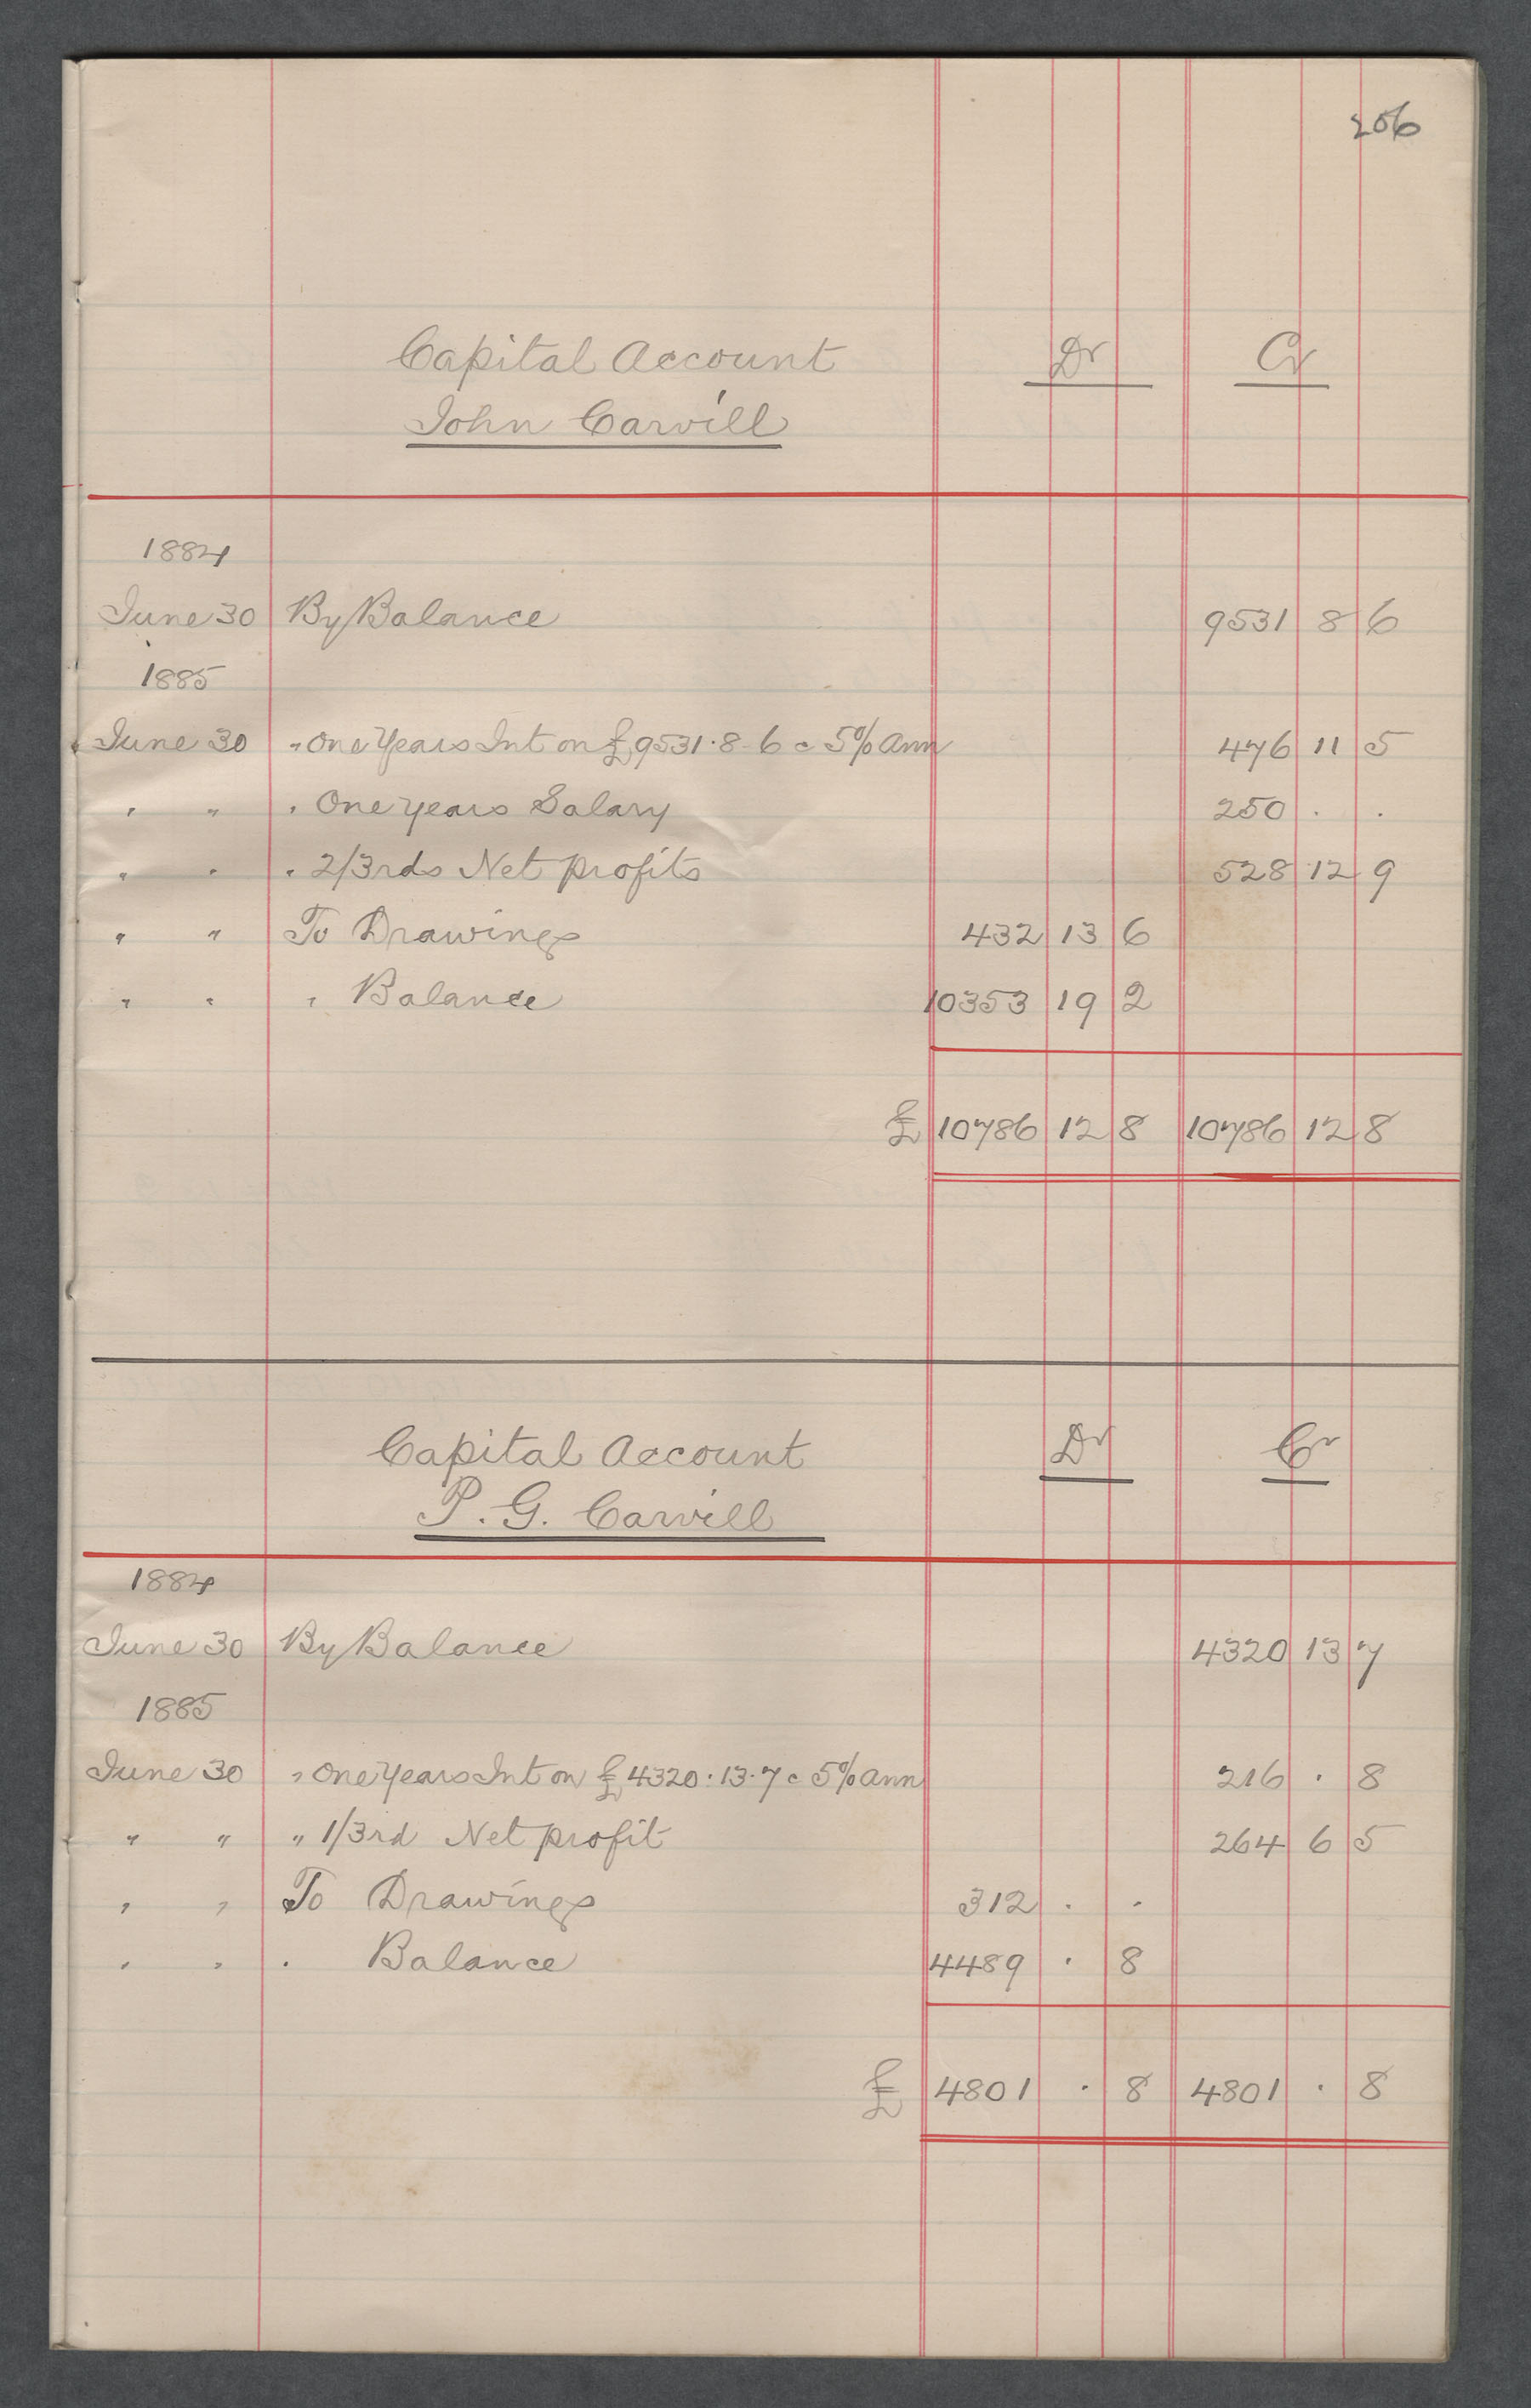 206
Capital Account Dr Cr
John Carvill
1884
June 30 By Balance 9531 8 6
1885
June 30 " One Years Int on £9531·8·6 @ 5% Ann 476 11 5
" " " One years Salary 250 . .
" " " 2/3rds Net profits 528 12 9
" " To Drawings 432 13 6
" " " Balance 10353 19 2
£ 10786 12 8 10786 12 8
Capital Account Dr Cr
P. G. Carvill
1884
June 30 By Balance 4320 13 7
1885
June 30 " One Years Int on £4320·13·7 @ 5% Ann 216 . 8
" " " 1/3rd Net profit 264 6 5
" " To Drawings 312 . .
" " " Balance 4489 . 8
£ 4801 . 8 4801 . 8